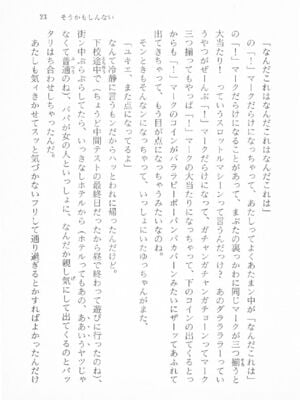 23　そうかもしんない
「なんだこれはなんだこれはなんだこれは」
の「！」マークだらけになっちゃって、あたしってよくあたまん中が「なんだこれは」
の「！」マークだらけになることがあるって、まぶたの裏っかわに同じマークが三つ揃うと
大当たり！　っていうスロットルマシーンって言うんだっけ？　あのダララララーってい
うやつがぜーんぶ「！」マークだらけになって、ガチャンガチャンガチョーンってマーク
三つ揃ってもやっぱ「！」マークの大当たりになちゃって、下のコインの出てくるとっ
からも「！」マークのコインがバララララビーボーバンバカバーンみたいにザーってあふれて
出てきちゃって、もう目が点になっちゃうみたいなのね。
そんときもそんなンになっちゃって、いっしょにいたゆっちゃんがまた、
「ユキエ、また点になってるよ」
なんて冷静に言うもンだからハッとわれに帰ったんだけど。
下校途中で（ちょうど中間テストの最終日だったから昼で終わって遊びに行ったのね）、
街ン中ぶらぶらしてたら、いっきなしホテルから（ホテルってもあの、ああいうヤツじゃ
なくて普通のね）、パパが女の人といっしょに、なんだか親し気にして出てくるのとバッ
タリはち合わせしちゃったんだ。
あたしも気イきかせてスッと気づかないフリして通り過ぎるとかすればよかったんだけ